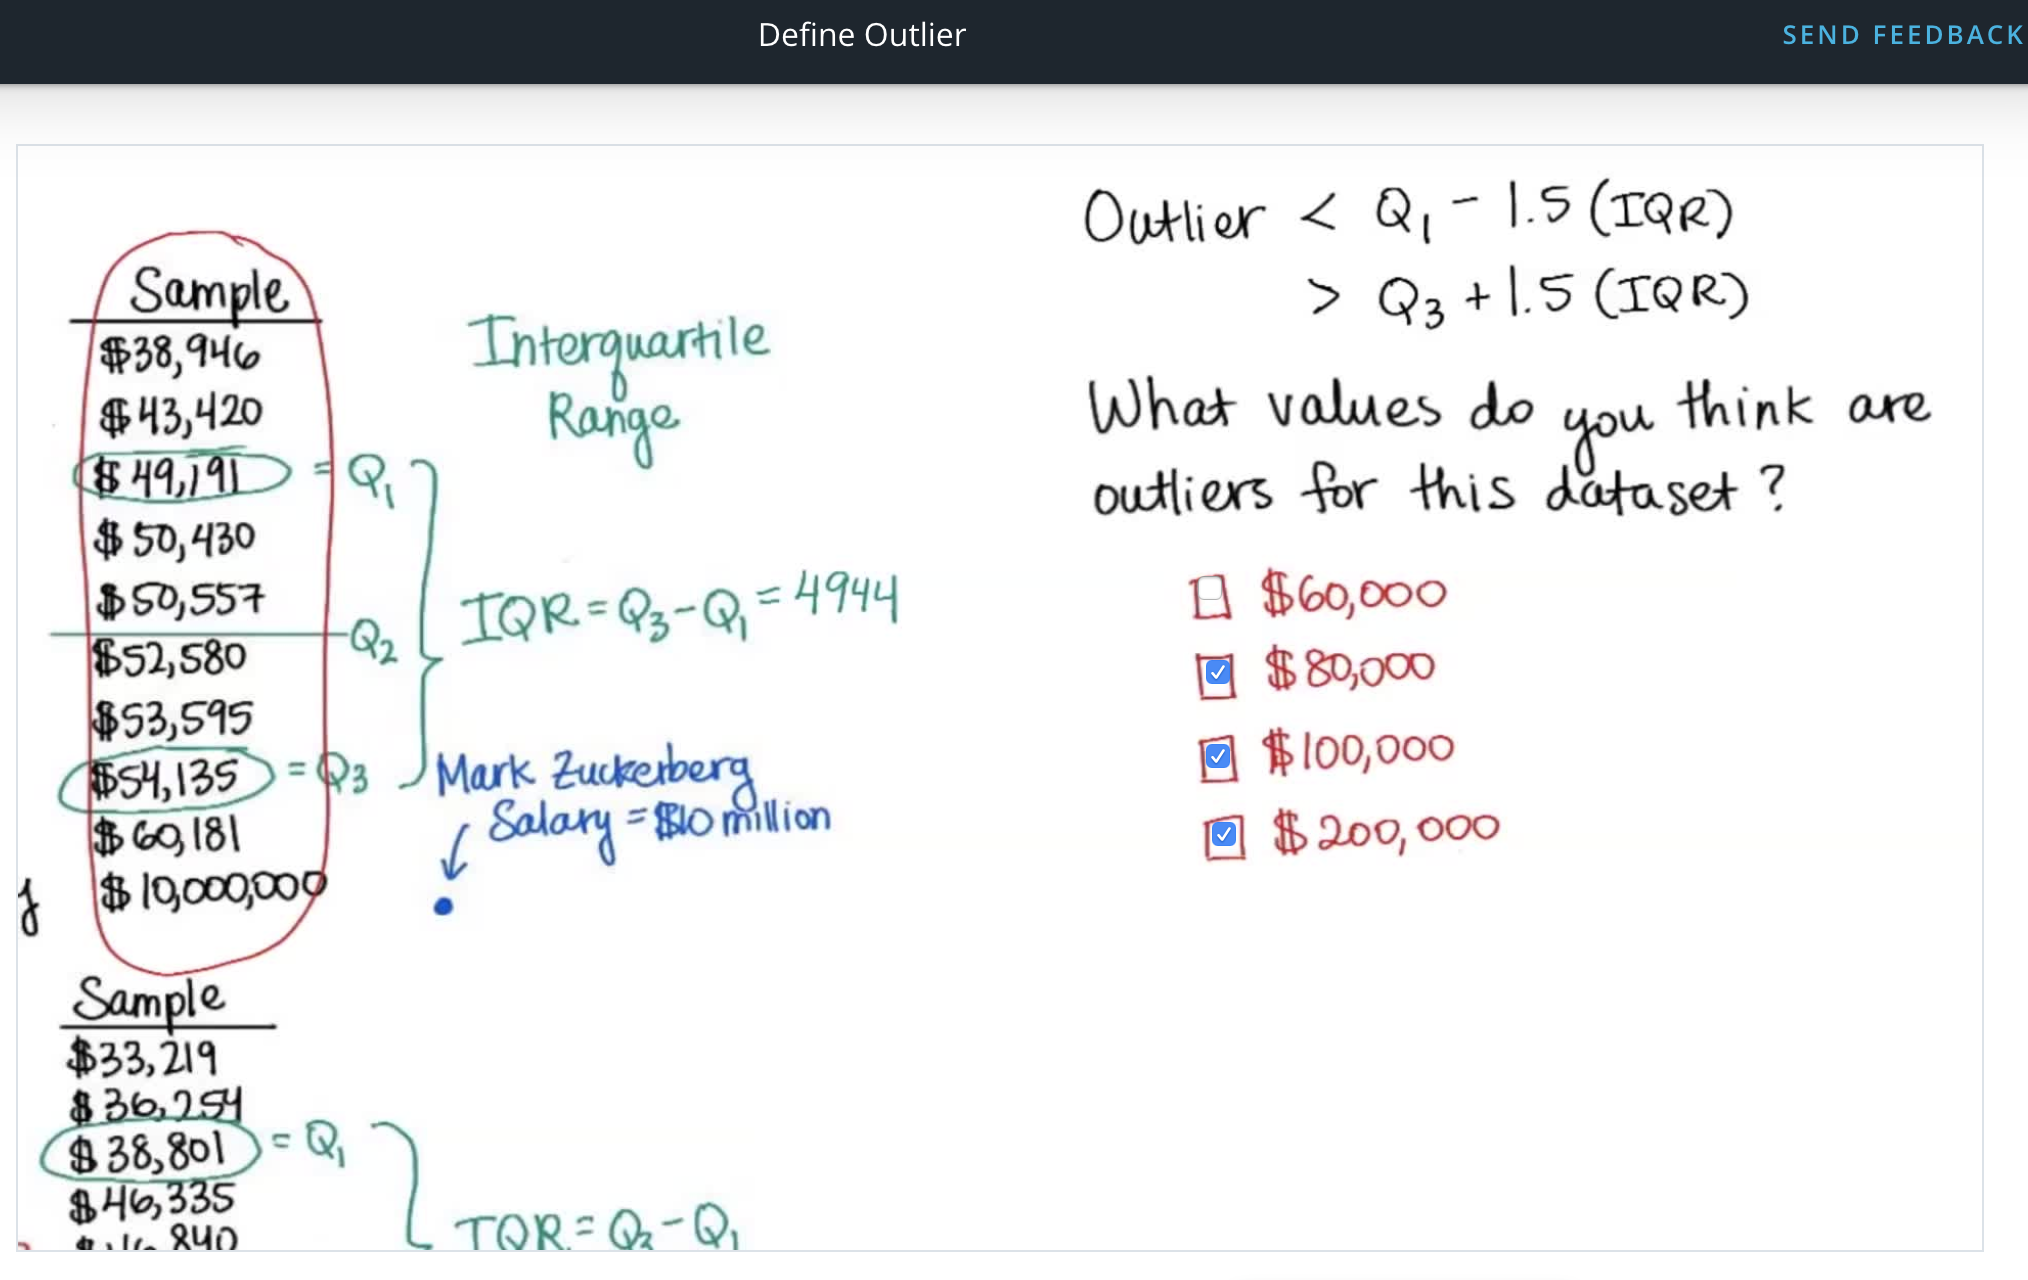 Define Outlier
SEND FEEDBACK
Sample
$38,946
$43,420
$49,191 = Q₁
$50,430
$50,557
Q₂
$52,580
$53,595
$54,135 = Q₃
$60,181
$10,000,000
Interquartile
Range
IQR = Q₃ - Q₁ = 4944
Mark Zuckerberg
Salary = $10 million
Sample
$33,219
$36,254
$38,801 = Q₁
$46,335
IQR = Q₃ - Q₁
Outlier < Q₁ - 1.5 (IQR)
> Q₃ + 1.5 (IQR)
What values do you think are
outliers for this dataset?
$60,000
$80,000
$100,000
$200,000